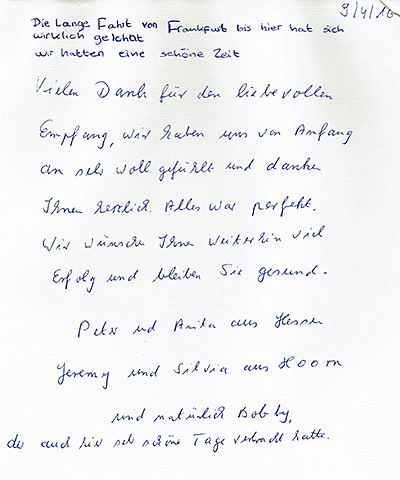 9/4/16
Die Lange Fahrt von Frankfurt bis hier hat sich
wirklich gelohnt
wir hatten eine schöne Zeit
Vielen Dank für den liebevollen
Empfang, wir haben uns von Anfang
an sehr woll gefühlt und danken
Ihnen herzlich. Alles war perfekt.
Wir wünschen Ihnen weiterhin viel
Erfolg und bleiben Sie gesund.
Peter und Anita aus Hessen
Jeremy und Silvia aus Hoorn
und natürlich Bobby,
der auch hier sehr schöne Tage verbracht hatte.